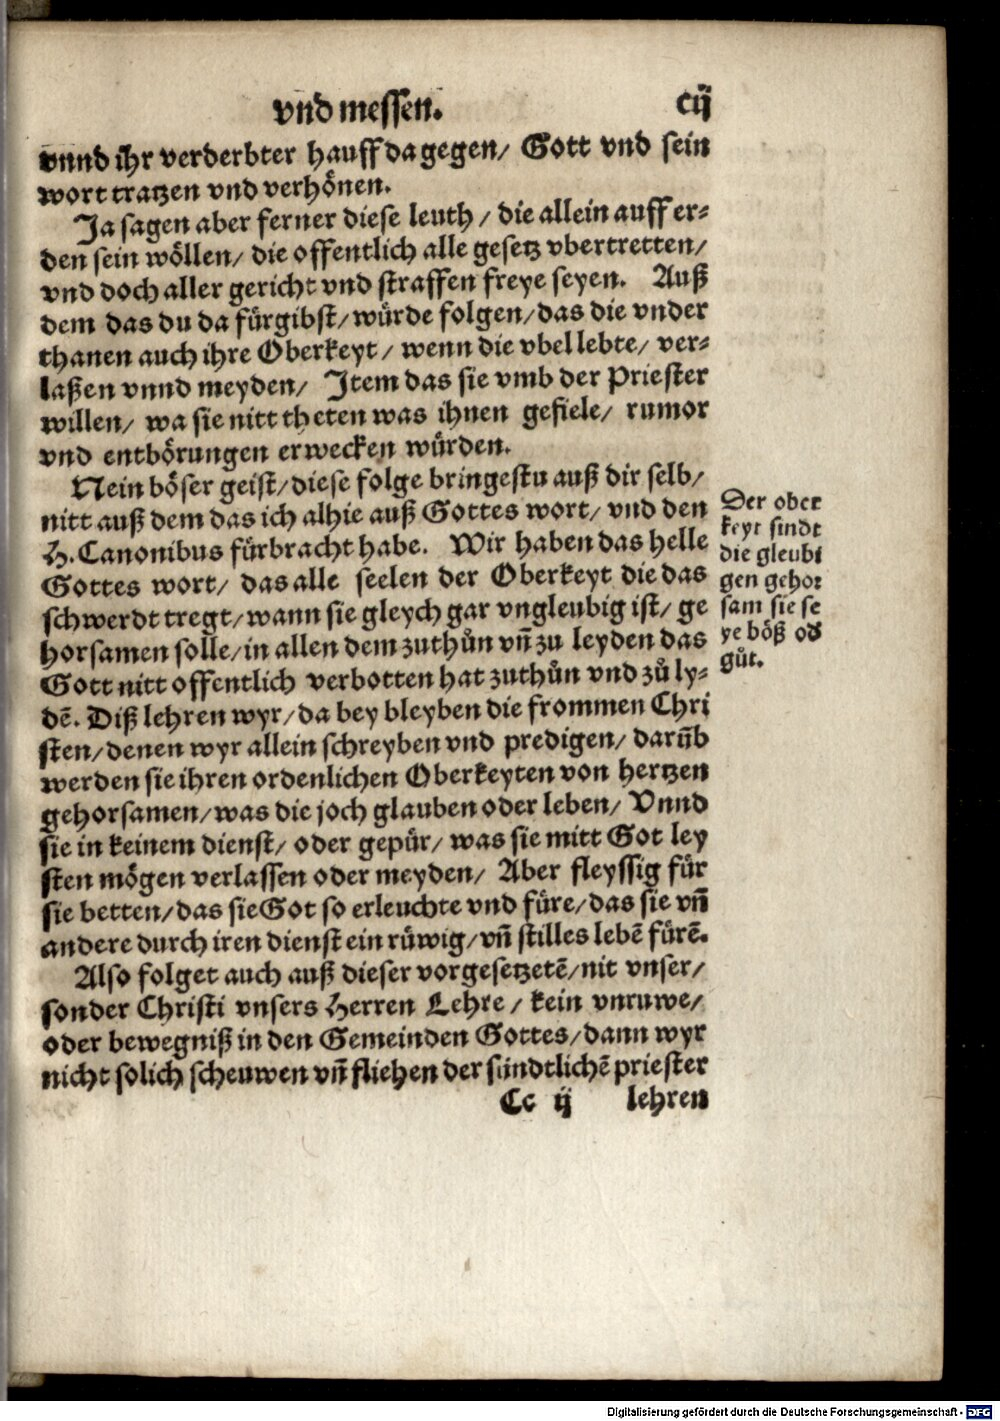 vnd messen.
cij
vnnd ihr verderbter hauff dagegen/ Gott vnd sein
wort tratzen vnd verhönen.
Ja sagen aber ferner diese leuth / die allein auff er⸗
den sein wöllen/ die offentlich alle gesetz vbertretten/
vnd doch aller gericht vnd straffen freye seyen. Auß
dem das du da fürgibst/ würde folgen/ das die vnder
thanen auch ihre Oberkeyt / wenn die vbel lebte/ ver⸗
laßen vnnd meyden/ Item das sie vmb der Priester
willen/ wa sie nitt theten was ihnen gefiele/ rumor
vnd entbörungen erwecken würden.
Nein böser geist/ diese folge bringestu auß dir selb/
nitt auß dem das ich alhie auß Gottes wort/ vnd den
H. Canonibus fürbracht habe. Wir haben das helle
Gottes wort/ das alle seelen der Oberkeyt die das
schwerdt tregt/ wann sie gleych gar vngleubig ist/ ge
horsamen solle/ in allen dem zuthůn vñ zu leyden das
Gott nitt offentlich verbotten hat zuthůn vnd zů ly⸗
dẽ. Diß lehren wyr/ da bey bleyben die frommen Chri
sten/ denen wyr allein schreyben vnd predigen/ darũb
werden sie ihren ordenlichen Oberkeyten von hertzen
gehorsamen/ was die joch glauben oder leben/ Vnnd
sie in keinem dienst/ oder gepür/ was sie mitt Got ley
sten mögen verlassen oder meyden/ Aber fleyssig für
sie betten/ das sie Got so erleuchte vnd füre/ das sie vñ
andere durch iren dienst ein rüwig/ vñ stilles lebẽ fürẽ.
Also folget auch auß dieser vorgesetzetẽ/ nit vnser/
sonder Christi vnsers Herren Lehre / kein vnruwe/
oder bewegniß in den Gemeinden Gottes/ dann wyr
nicht solich scheuwen vñ fliehen der sündtlichẽ priester
Cc ij
lehren
Der ober
keyt sindt
die gleubi
gen gehor
sam sie se
ye böß od
gůt.
Digitalisierung gefördert durch die Deutsche Forschungsgemeinschaft - DFG